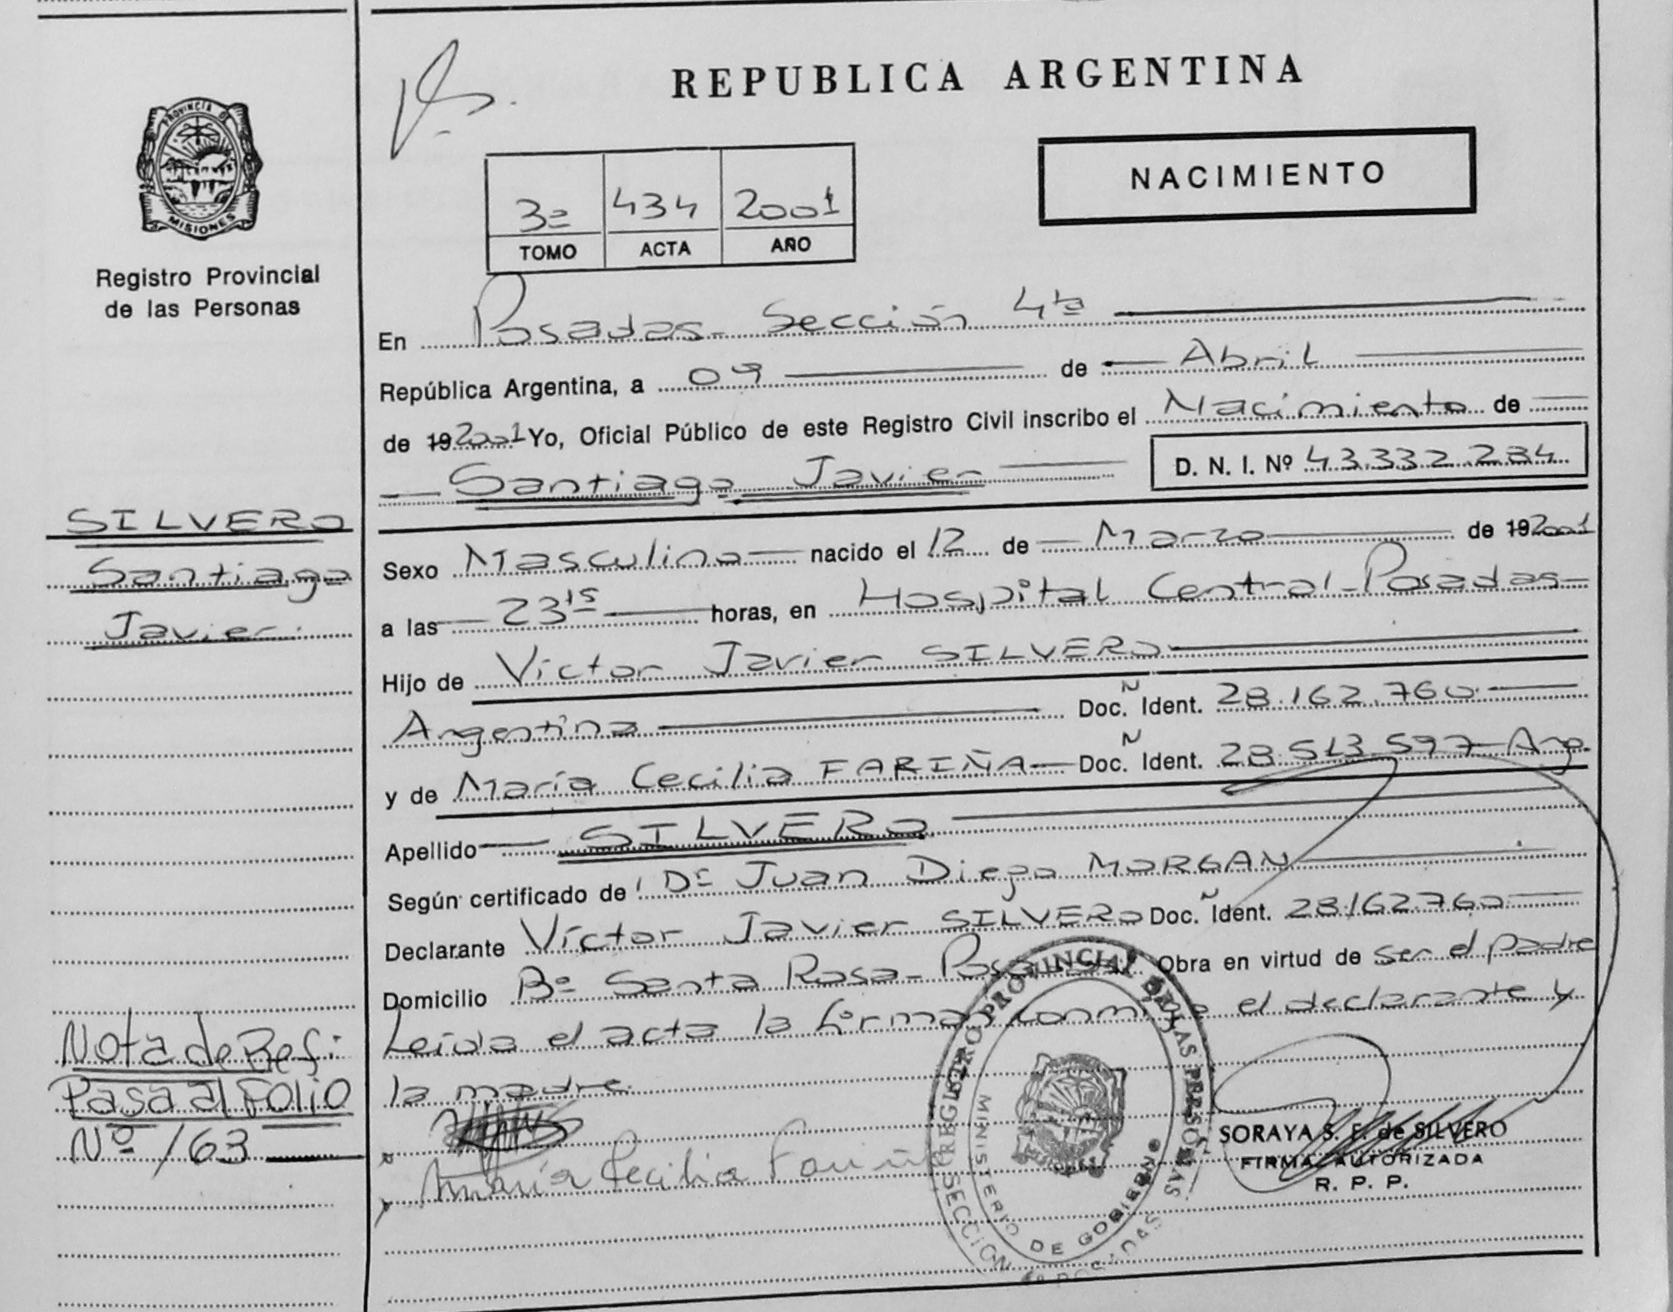 REPUBLICA ARGENTINA
NACIMIENTO
PROVINCIA DE
MISIONES
Registro Provincial
de las Personas
3º 434 2001
TOMO ACTA AÑO
En Posadas - Sección 4ta
República Argentina, a 09 de Abril
de 192001 Yo, Oficial Público de este Registro Civil inscribo el Nacimiento de
Santiago Javier D. N. I. Nº 43.332.284
SILVERO
Santiago
Javier.
Sexo Masculino nacido el 12 de Marzo de 192001
a las 23 15 horas, en Hospital Central - Posadas
Hijo de Víctor Javier SILVERO
Argentina Doc. Ñ Ident. 28.162.760
y de María Cecilia FARIÑA Doc. Ñ Ident. 28.513.597 Arg.
Apellido SILVERO
Según certificado de Dr Juan Diego MORGAN
Declarante Víctor Javier SILVERO Doc. Ñ Ident. 28.162.760
Domicilio Bº Santa Rosa - Obra en virtud de ser el padre
Leída el acta la firman conmigo el declarante y
la madre.
María Cecilia Fariña
Nota de Ref:
Pasa al Folio
Nº 163
REGISTRO PROVINCIAL DE LAS PERSONAS
MINISTERIO DE GOBIERNO
SECCION 4a POSADAS
SORAYA S. F. de SILVERO
FIRMA AUTORIZADA
R. P. P.